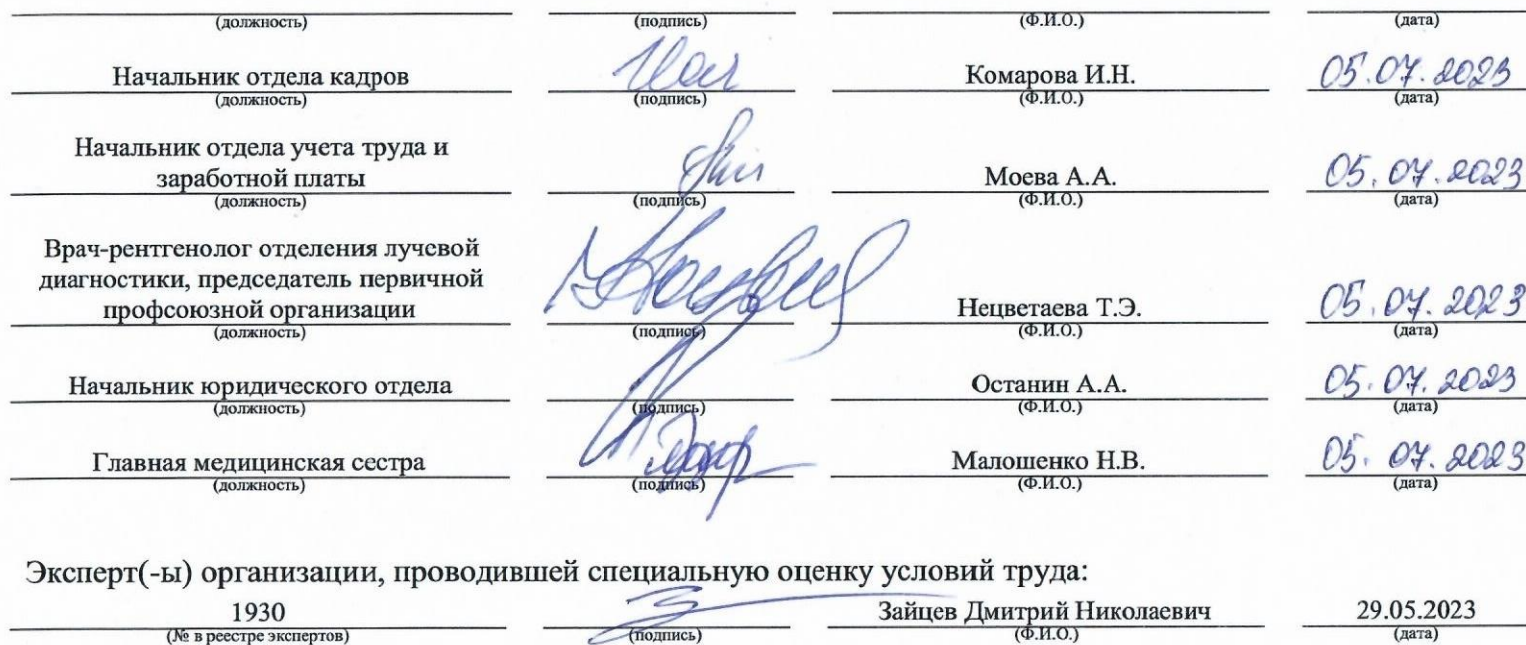 (должность) (подпись) (Ф.И.О.) (дата)
Начальник отдела кадров Комарова И.Н. 05.07.2023
(должность) (подпись) (Ф.И.О.) (дата)
Начальник отдела учета труда и
заработной платы Моева А.А. 05.07.2023
(должность) (подпись) (Ф.И.О.) (дата)
Врач-рентгенолог отделения лучевой
диагностики, председатель первичной
профсоюзной организации Нецветаева Т.Э. 05.07.2023
(должность) (подпись) (Ф.И.О.) (дата)
Начальник юридического отдела Останин А.А. 05.07.2023
(должность) (подпись) (Ф.И.О.) (дата)
Главная медицинская сестра Малошенко Н.В. 05.07.2023
(должность) (подпись) (Ф.И.О.) (дата)
Эксперт(-ы) организации, проводившей специальную оценку условий труда:
1930 Зайцев Дмитрий Николаевич 29.05.2023
(№ в реестре экспертов) (подпись) (Ф.И.О.) (дата)